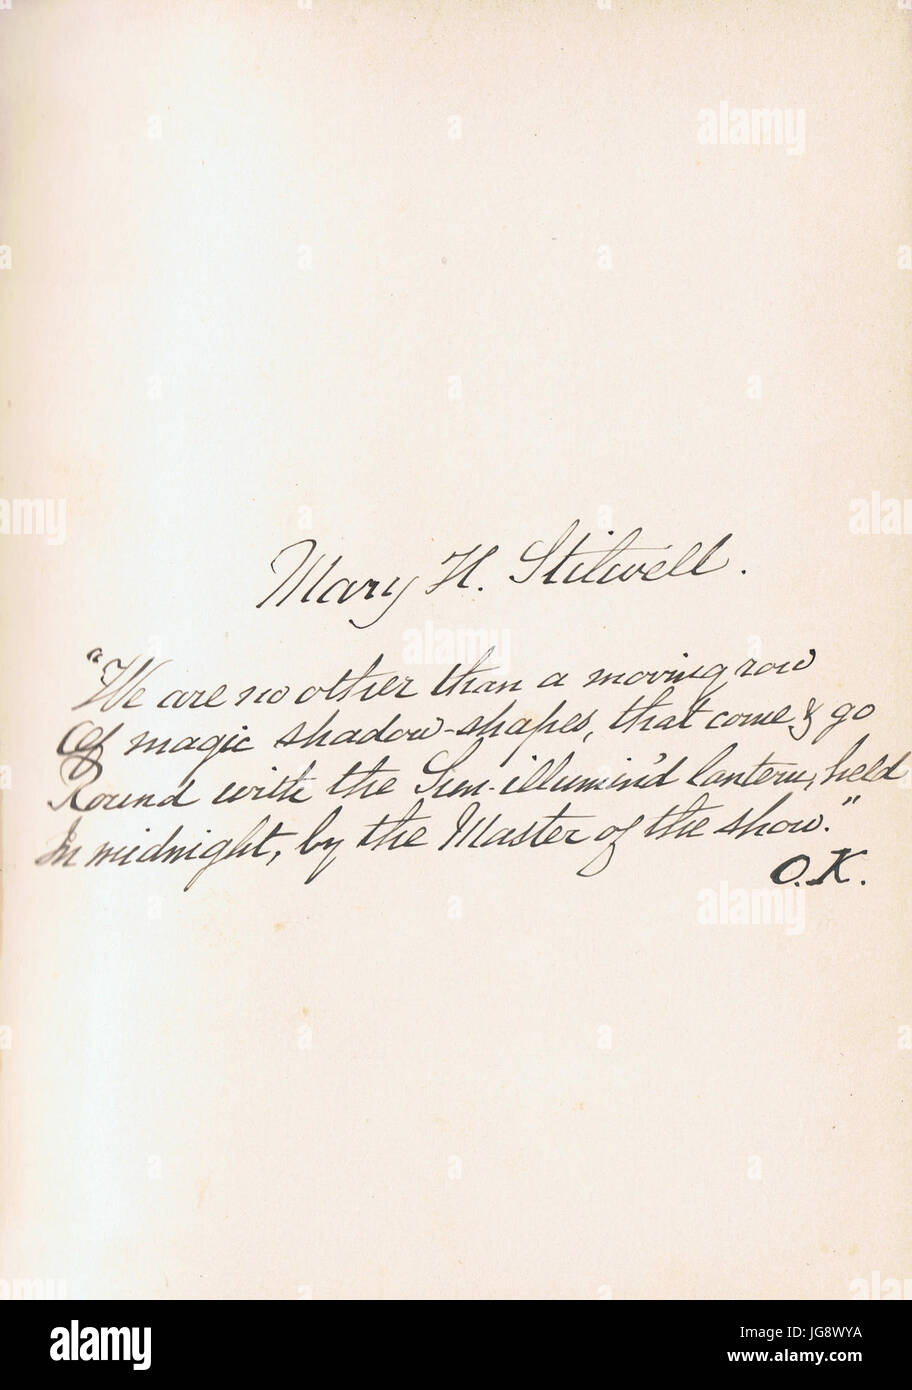 Mary H. Stilwell.
"We are no other than a moving row
Of magic shadow-shapes, that come & go
Round with the Sun-illumin'd lantern, held
In midnight, by the Master of the show."
O.K.
alamy
Image ID: JG8WYA
www.alamy.com